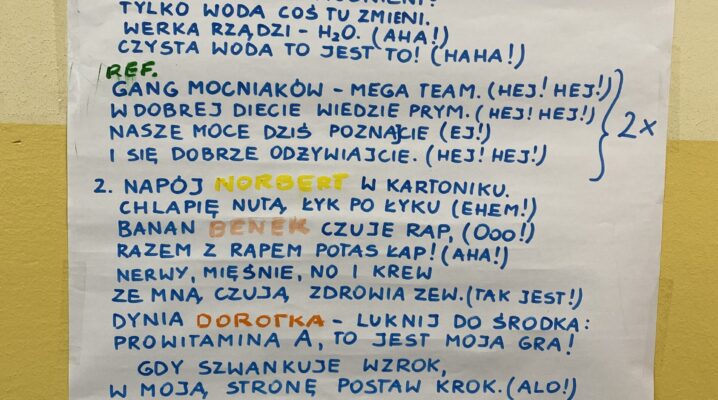 TYLKO WODA COŚ TU ZMIENI.
WERKA RZĄDZI - H₂O. (AHA!)
CZYSTA WODA TO JEST TO! (HAHA!)
REF.
GANG MOCNIAKÓW - MEGA TEAM. (HEJ! HEJ!)
W DOBREJ DIECIE WIEDZIE PRYM. (HEJ! HEJ!)
NASZE MOCE DZIŚ POZNAJCIE (EJ!)
I SIĘ DOBRZE ODŻYWIAJCIE. (HEJ! HEJ!)
2x
2. NAPÓJ NORBERT W KARTONIKU.
CHLAPIĘ NUTĄ, ŁYK PO ŁYKU (EHEM!)
BANAN BENEK CZUJE RAP, (Ooo!)
RAZEM Z RAPEM POTAS ŁAP! (AHA!)
NERWY, MIĘŚNIE, NO I KREW
ZE MNĄ CZUJĄ ZDROWIA ZEW. (TAK JEST!)
DYNIA DOROTKA - LUKNIJ DO ŚRODKA:
PROWITAMINA A, TO JEST MOJA GRA!
GDY SZWANKUJE WZROK,
W MOJĄ STRONĘ POSTAW KROK. (ALO!)